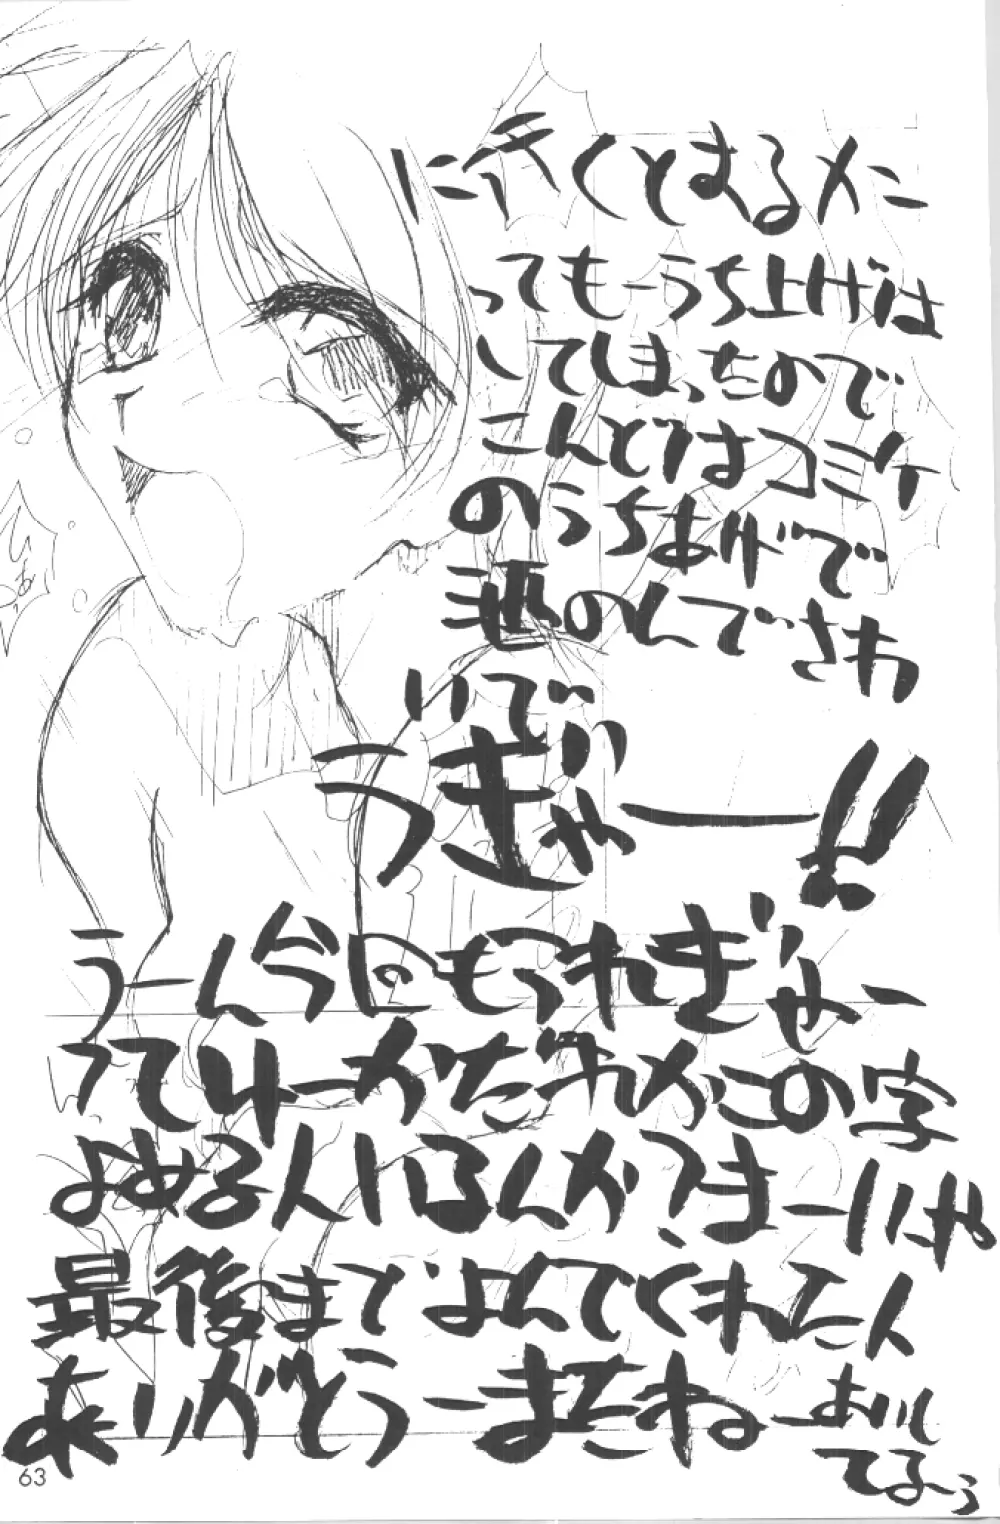 に行くとまるメン
ってもーうち上げは
してしまったので
こんどはコミケ
のうちあげで
酒のんでさわ
いでぃ
うぎゃー!!
うーん今回もつれぎゃー
ってゆーかだれかこの字
よめる人いるんか?まーいいや
最後までよんでくれた人
ありがとうーまたねーあいし
てるーぅ
ひぁ
63